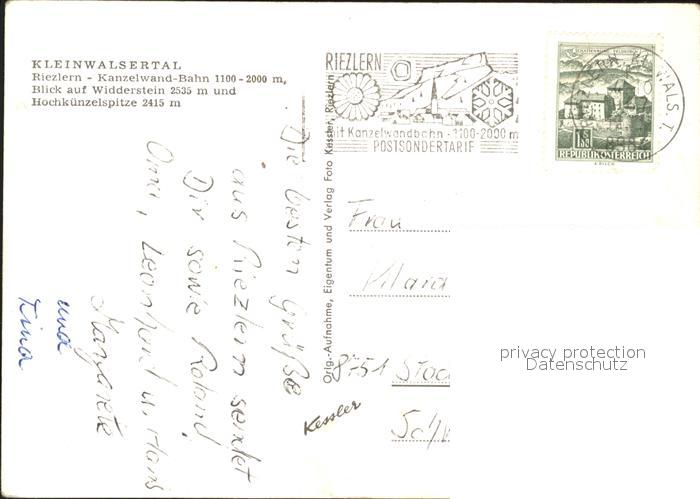 KLEINWALSERTAL
Riezlern - Kanzelwand-Bahn 1100-2000 m,
Blick auf Widderstein 2535 m und
Hochkünzelspitze 2415 m
RIEZLERN
mit Kanzelwandbahn · 1100-2000 m
POSTSONDERTARIF
REPUBLIK ÖSTERREICH
Die besten Grüße
aus Riezlern sendet
Dir sowie Roland
Oma, Leonhard u. Hans
Margarete
und
Tina
Orig.-Aufnahme, Eigentum und Verlag Foto Kessler, Riezlern
Kessler
Frau
8751
privacy protection
Datenschutz